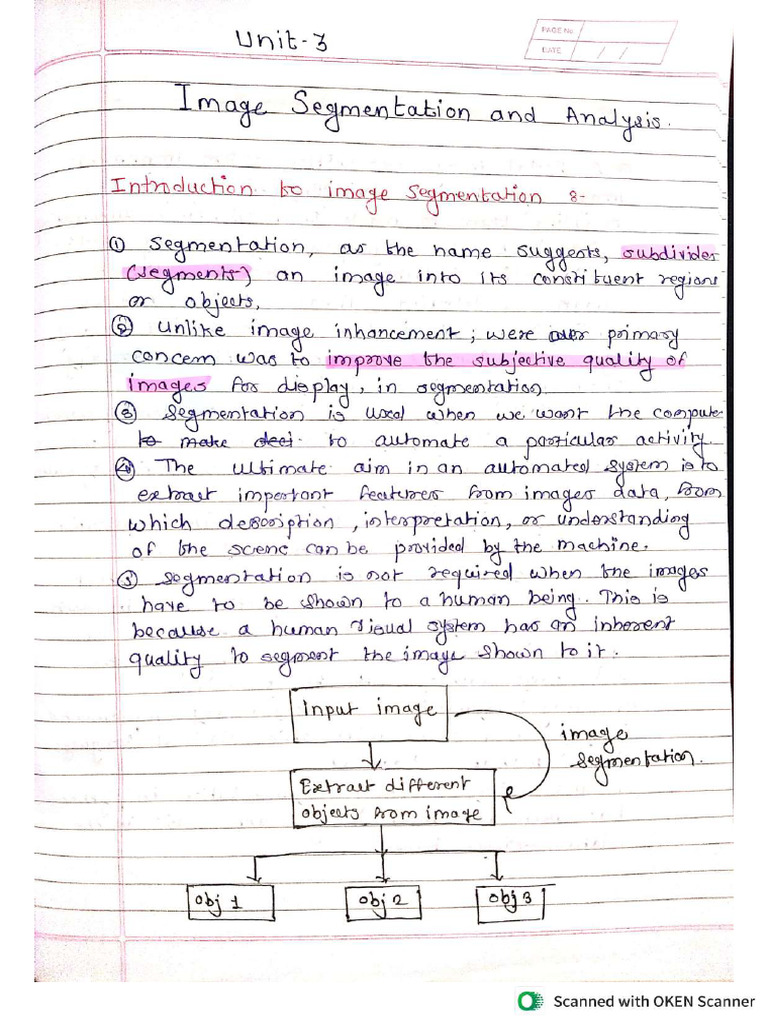 Unit-3
PAGE No
DATE / /
Image Segmentation and Analysis.
Introduction to image segmentation :-
① segmentation, as the name suggests, subdivides
(segments) an image into its constituent regions
or objects,
② unlike image inhancement; were our primary
concern was to improve the subjective quality of
images for display, in segmentation
③ segmentation is used when we want the compute
to make deci. to automate a particular activity.
④ The ultimate aim in an automated system is to
extract important features from images data, from
which description, interpretation, or understanding
of the scene can be provided by the machine.
⑤ segmentation is not required when the images
have to be shown to a human being. This is
because a human visual system has an inherent
quality to segment the image shown to it.
Input image
image
segmentation.
Extract different
objects from image
obj 1 obj 2 obj 3
Scanned with OKEN Scanner